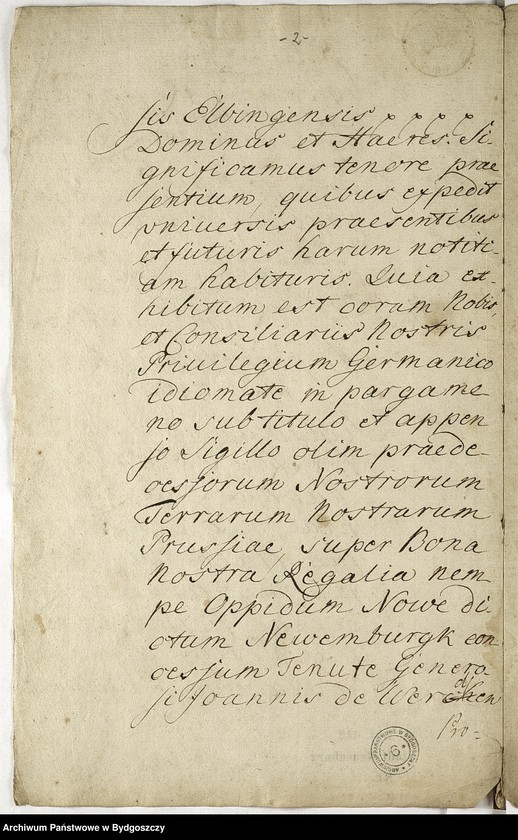 -2-
sis Elbingensis x x x x
Dominus et Haeres. Si-
gnificamus tenore prae
sentium, quibus expedit
vniuersis praesentibus
et futuris harum notiti-
am habituris. Quia ex-
hibitum est coram Nobis,
et Consiliariis Nostris
Priuilegium Germanico
idiomate in pargame
no sub titulo et appen
so Sigillo olim praede-
cessorum Nostrorum
Terrarum Nostrarum
Prussiae, super Bona
Nostra Regalia nem
pe Oppidum Nowe di
ctum Newemburgk con
cessum Tenute Genero
si Joannis de Werden
Pro=
Archiwum Państwowe w Bydgoszczy